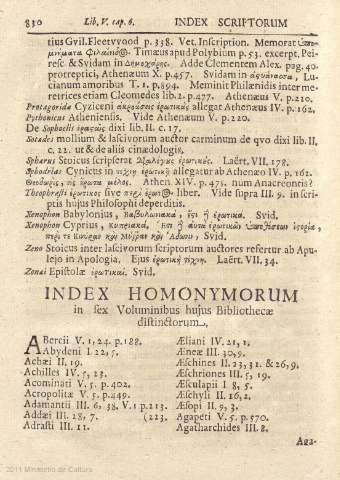 830 Lib. V. cap. 6. INDEX SCRIPTORUM
tius Gvil. Fleetvvood p. 338. Vet. Inscription. Memorat
Timæus apud Polybium p. 53. excerpt. Pei-
resc. & Svidam in Δημοχάρης. Adde Clementem Alex. pag. 40.
protreptici, Athenæum X. p. 457. Svidam in Lu-
cianum amoribus T. 1. p. 894. Meminit Philænidis inter me-
retrices etiam Cleomedes lib. 2. p. 477. Athenæus V. p. 220.
Protagoridæ Cyziceni ἀκροάσεις ἐρωτικὰς allegat Athenæus IV. p. 162.
Pythonicus Atheniensis. Vide Athenæum V. p. 220.
De Sophoclis dixi lib. II. c. 17.
Sotades mollium & lascivorum auctor carminum de qvo dixi lib. II.
c. 22. ut & de aliis cinædologis.
Sphærus Stoicus scripserat διαλόγους ἐρωτικούς. Laërt. VII. 178.
Sphodrias Cynicus in τέχνῃ ἐρωτικῇ allegatur ab Athenæo IV. p. 162.
Θεόδωρος, τὰς ἔρωτα μέλος. Athen. XIV. p. 475. num Anacreontis?
Theophrasti ἐρωτικὸς sive περὶ ἔρωτος liber. Vide supra III. 9. in scri-
ptis hujus Philosophi deperditis.
Xenophon Babylonius, Βαβυλωνιακὰ, ἔστι δ' ἐρωτικά. Svid.
Xenophon Cyprius, Κυπριακὰ, Ἔστι δὲ καὶ αὐτὰ ἐρωτικῶν ὑποθέσεων ἱστορία,
περί τε Κινύραν καὶ Μύρραν καὶ Ἄδωνιν, Svid.
Zeno Stoicus inter lascivorum scriptorum auctores refertur ab Apu-
lejo in Apologia. Ejus ἐρωτικὴ τέχνη. Laërt. VII. 34.
Zonæi Epistolæ ἐρωτικαί. Svid.
INDEX HOMONYMORUM
in sex Voluminibus hujus Bibliothecæ
distinctorum.
Abercii V. 1, 24. p. 188.
Abydeni I. 22, 5.
Achæi II. 19.
Achilles IV. 5, 23.
Acominati V. 5. p. 402.
Acropolitæ V. 5. p. 449.
Adamantii III. 6, 38. V. 1 p. 213.
Addæi III. 28, 7. (223.
Adrasti III. 11.
Æliani IV. 21, 1.
Æneæ III. 30, 9.
Æschines II. 23, 31. & 26, 9.
Æschriones III. 5, 19.
Æsculapii I 8, 5.
Æschyli II. 16, 2.
Æsopi II. 9, 3.
Agapeti V. 5. p. 570.
Agatharchides III. 8.
Aga-
2011 Ministerio de Cultura